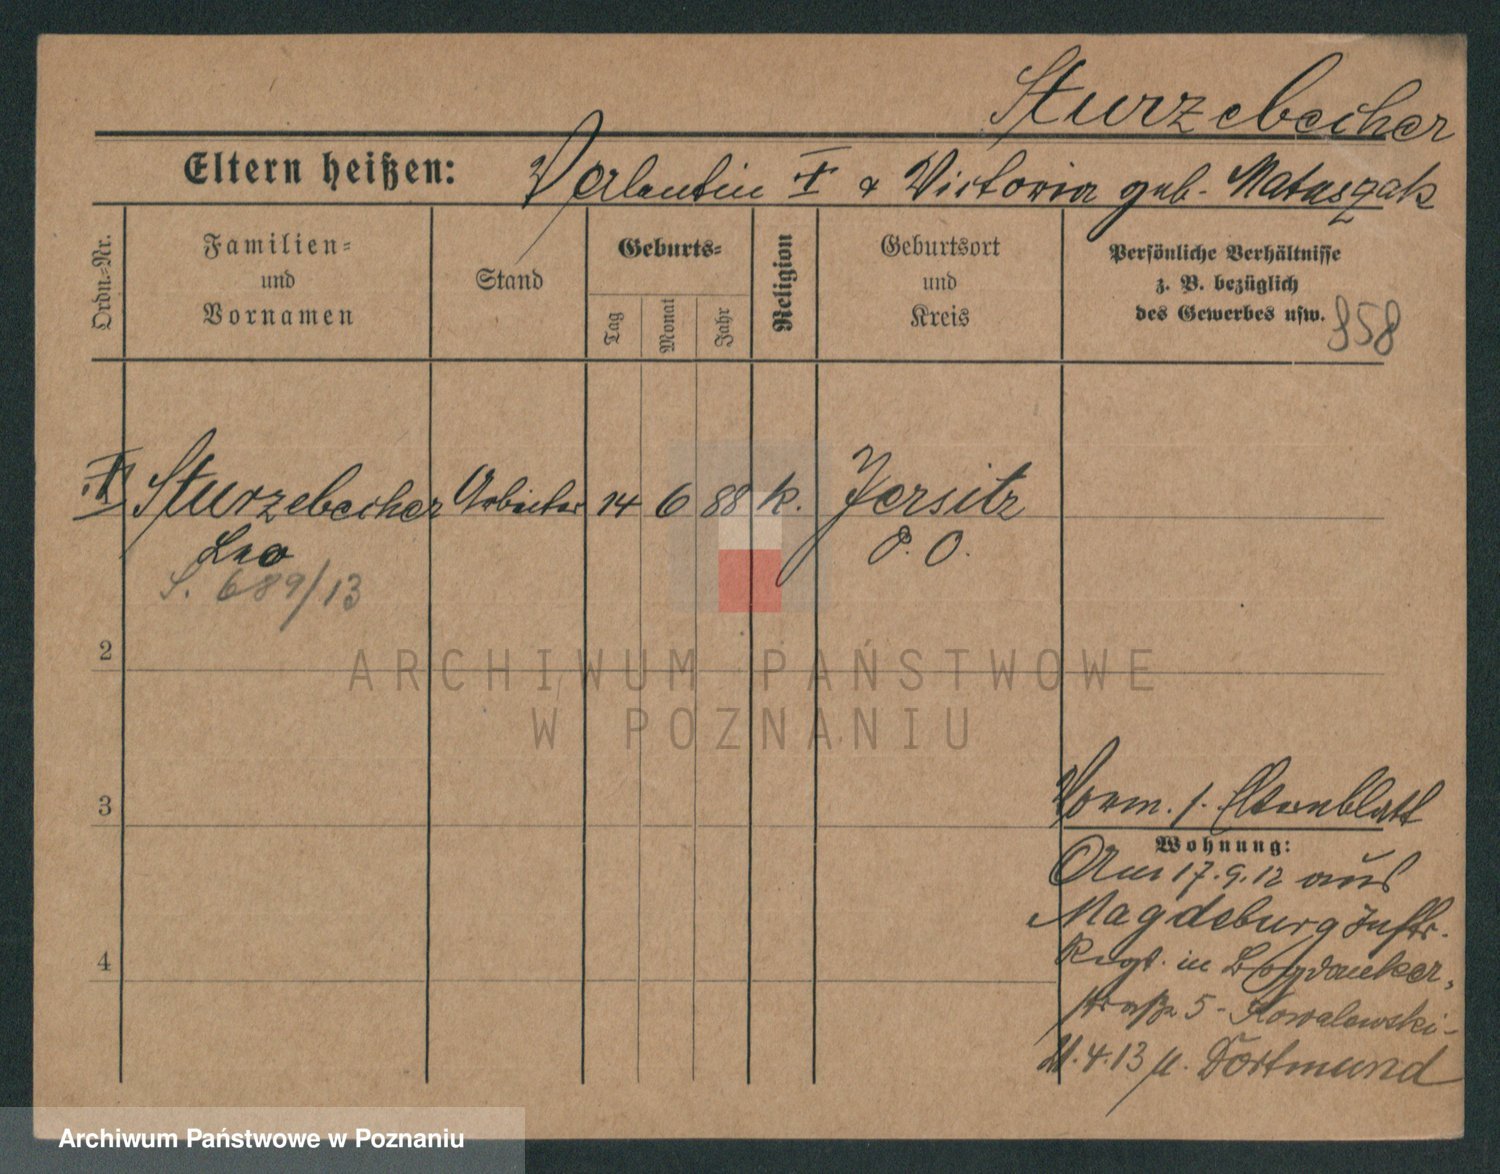 Sturzebecher
Eltern heißen: Valentin † & Victoria geb. Mataszak
Ordn.=Nr.
Familien=
und
Vornamen
Stand
Geburts=
Tag
Monat
Jahr
Religion
Geburtsort
und
Kreis
Persönliche Verhältnisse
z. B. bezüglich
des Gewerbes usw.
858
Sturzebecher Arbeiter 14 6 88 k. Jersitz
Leo P. O.
S. 689/13
2
3
4
Vorm. s. Elternblatt
Wohnung:
Am 17.9.12 aus
Magdeburg Inftr.
Regt. in Bogdanker=
straße 5 - Kowalewski -
21.4.13 n. Dortmund
ARCHIWUM PAŃSTWOWE
W POZNANIU
Archiwum Państwowe w Poznaniu